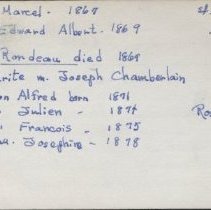 Marcel - 1867
Edward Albert - 1869
Rondeau died 1869
rite m. Joseph Chamberlain
on Alfred born 1871
" Julien - 1874
" Francois - 1875
Josephine - 1878